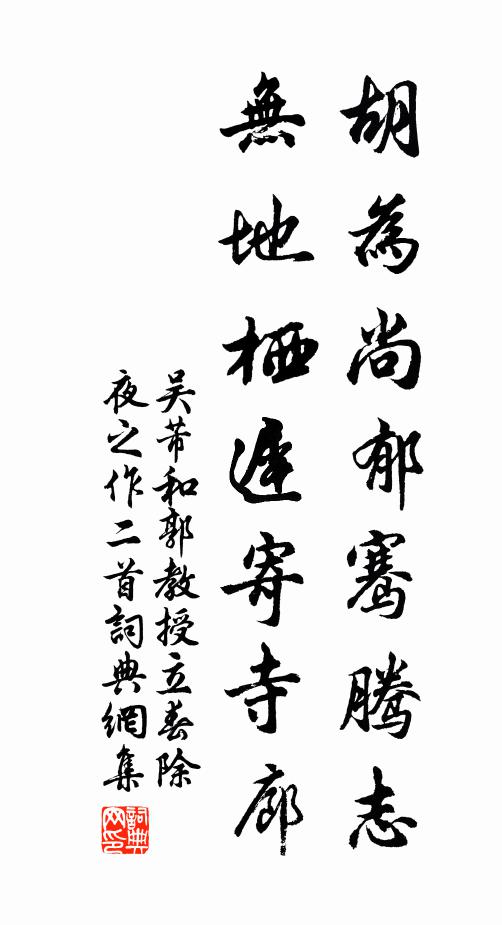 胡為尚郁騫騰志
無地栖遲寄寺廊
吴芾和郭教授立春除
夜之作二首詞典網集
詞典網印